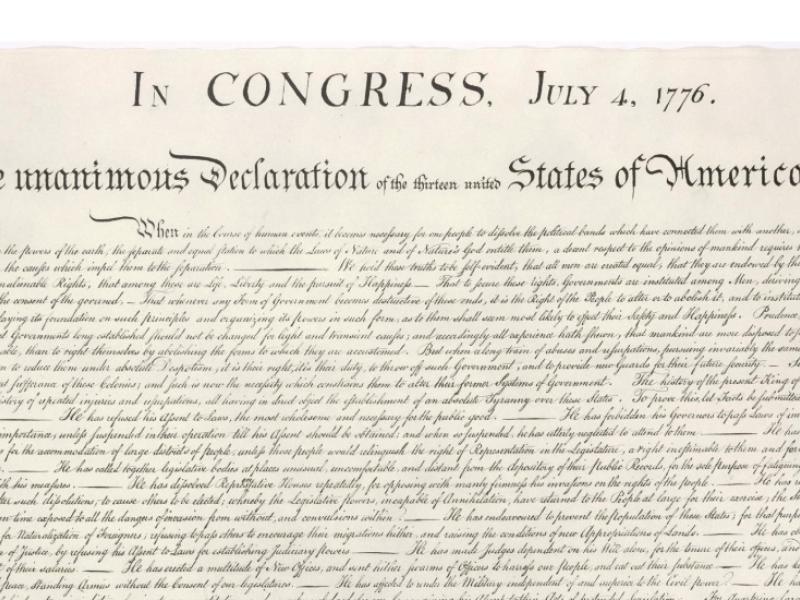 In CONGRESS, July 4, 1776.
unanimous Declaration of the thirteen united States of America
When in the Course of human events, it becomes necessary for one people to dissolve the political bands which have connected them with another,
the powers of the earth, the separate and equal station to which the Laws of Nature and of Nature's God entitle them, a decent respect to the opinions of mankind requires
the causes which impel them to the separation. — We hold these truths to be self-evident, that all men are created equal, that they are endowed by
unalienable Rights, that among these are Life, Liberty and the pursuit of Happiness.— That to secure these rights, Governments are instituted among Men, deriving
the consent of the governed, — That whenever any Form of Government becomes destructive of these ends, it is the Right of the People to alter or to abolish it, and to institute
laying its foundation on such principles and organizing its powers in such form, as to them shall seem most likely to effect their Safety and Happiness. Prudence,
Governments long established should not be changed for light and transient causes; and accordingly all experience hath shewn, that mankind are more disposed to
than to right themselves by abolishing the forms to which they are accustomed. But when a long train of abuses and usurpations, pursuing invariably the same
to reduce them under absolute Despotism, it is their right, it is their duty, to throw off such Government, and to provide new Guards for their future security. —
sufferance of these Colonies; and such is now the necessity which constrains them to alter their former Systems of Government. The history of the present King of
history of repeated injuries and usurpations, all having in direct object the establishment of an absolute Tyranny over these States. To prove this, let Facts be submitted
— He has refused his Assent to Laws, the most wholesome and necessary for the public good. — He has forbidden his Governors to pass Laws of
importance, unless suspended in their operation till his Assent should be obtained; and when so suspended, he has utterly neglected to attend to them. — He has
for the accommodation of large districts of people, unless those people would relinquish the right of Representation in the Legislature, a right inestimable to them and
— He has called together legislative bodies at places unusual, uncomfortable, and distant from the depository of their Public Records, for the sole purpose of fatiguing
his measures. — He has dissolved Representative Houses repeatedly, for opposing with manly firmness his invasions on the rights of the people. — He has
such dissolutions, to cause others to be elected; whereby the Legislative powers, incapable of Annihilation, have returned to the People at large for their exercise; the
time exposed to all the dangers of invasion from without, and convulsions within. — He has endeavoured to prevent the population of these States; for that
for Naturalization of Foreigners; refusing to pass others to encourage their migrations hither, and raising the conditions of new Appropriations of Lands. — He has
of Justice, by refusing his Assent to Laws for establishing Judiciary powers. — He has made Judges dependent on his Will alone, for the tenure of their offices, and
of their salaries. — He has erected a multitude of New Offices, and sent hither swarms of Officers to harrass our people, and eat out their substance. — He has
peace, Standing Armies without the Consent of our legislatures. — He has affected to render the Military independent of and superior to the Civil power. — He has